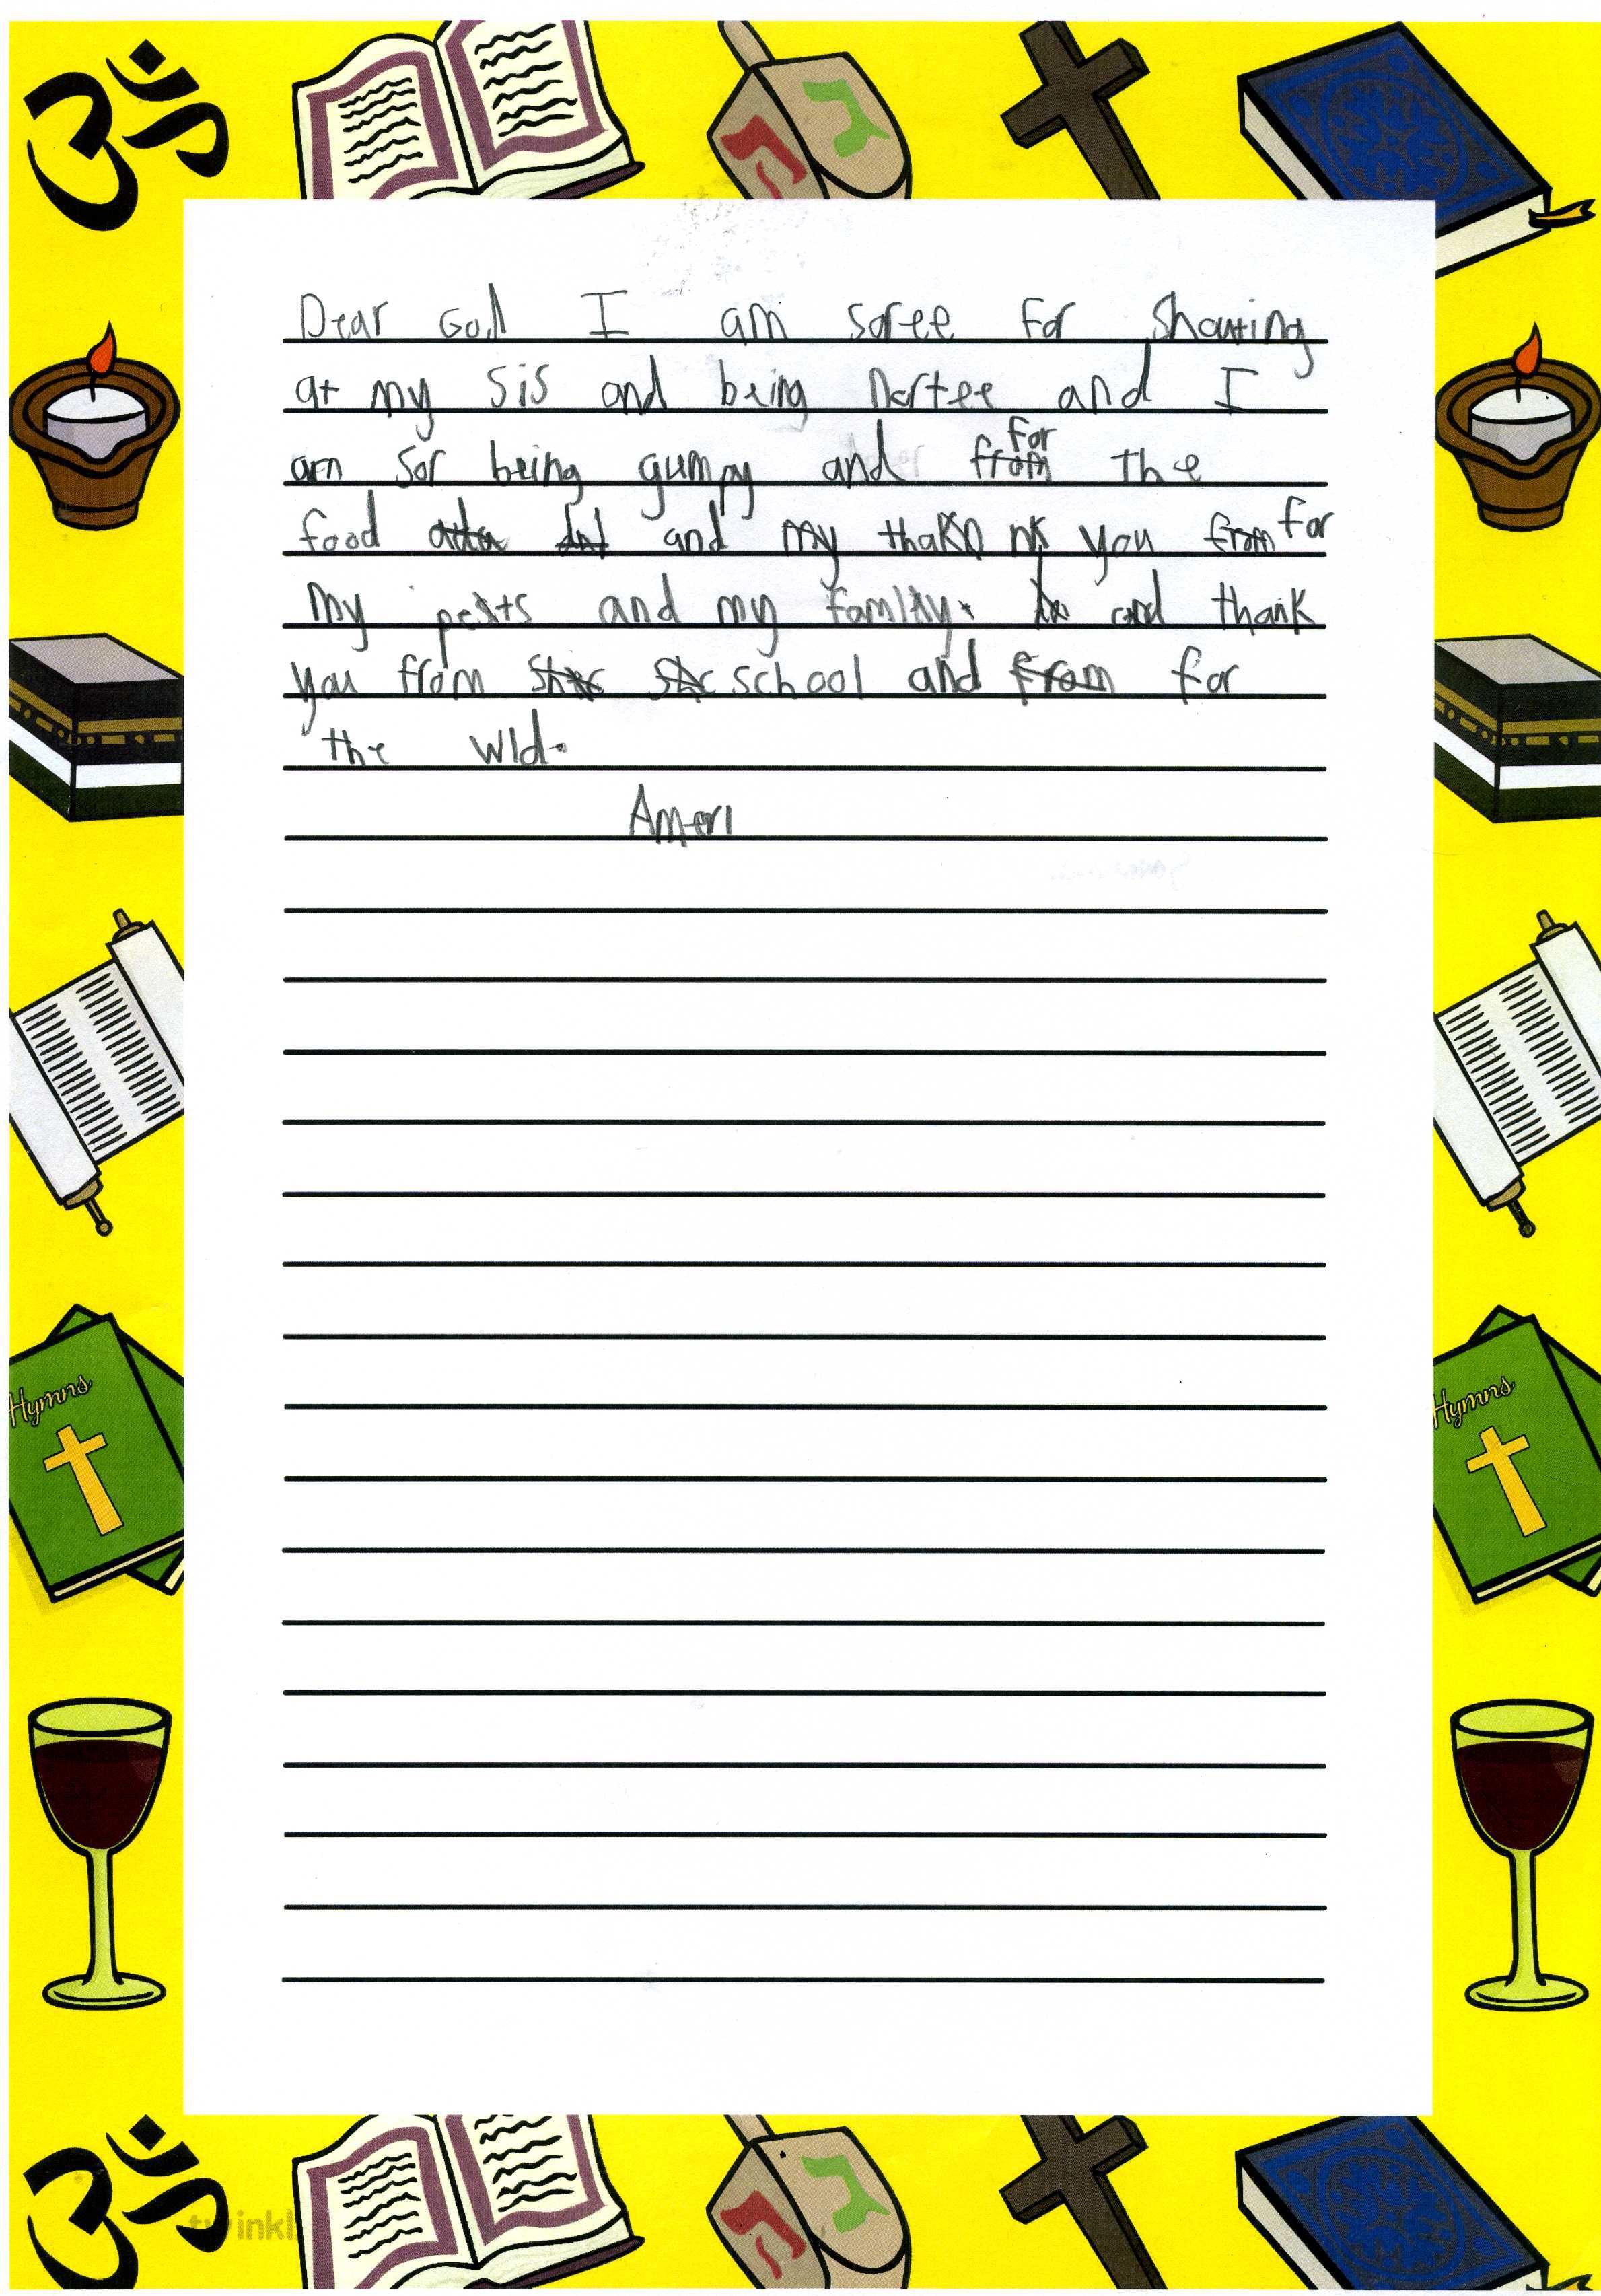 Dear God I am soree for Shouting
at my sis and being nortee and I
am sor being gumpy and for the
food and my thakn nk you for
my pests and my famliy. and thank
you from school and for
the wld.
Amen
Hymns
Hymns
twinkl